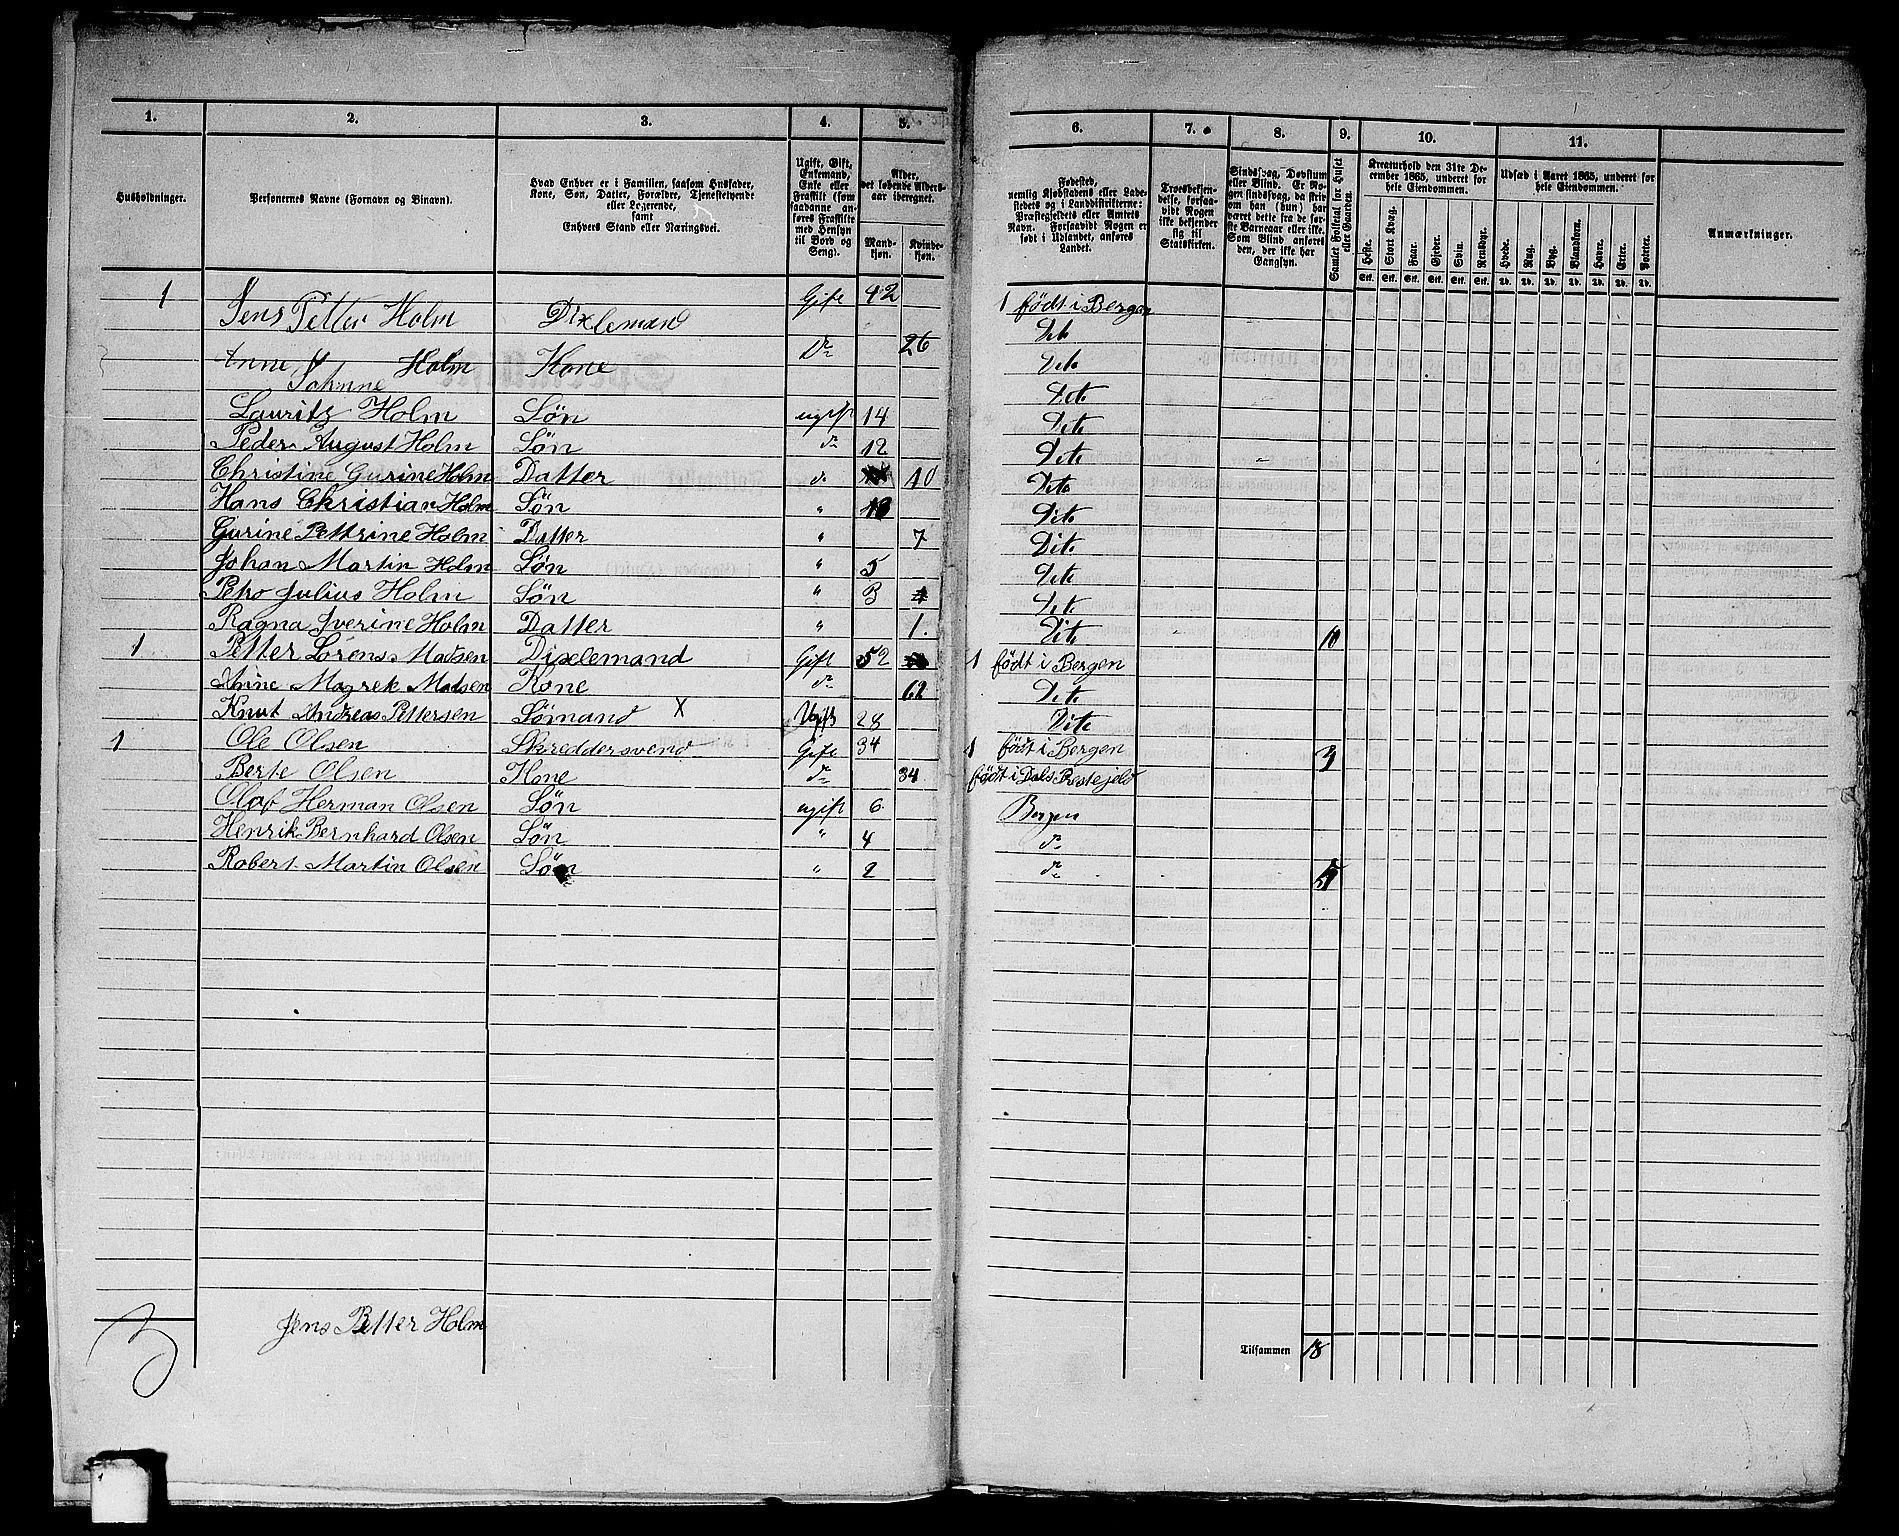 1. 2. 3. 4. 5. 6. 7. 8. 9. 10. 11.
Husholdninger.
Personernes Navne (Fornavn og Binavn).
Hvad Enhver er i Familien, saasom Husfader,
Kone, Søn, Datter, Forældre, Tjenestetyende
eller Logerende,
samt
Enhvers Stand eller Næringsvei.
Ugift, Gift,
Enkemand,
Enke eller
Fraskilt (som
saadanne an-
føres Fraskilte
med Hensyn
til Bord og
Seng).
Alder,
det løbende Alders-
aar iberegnet.
Mand-
kjøn.
Kvinde-
kjøn.
Fødested,
nemlig Kjøbstadens eller Lade-
stedets og i Landdistrikterne:
Præstegjeldets eller Amtets
Navn. Forsaavidt Nogen er
født i Udlandet, anføres
Landet.
Troesbekjen-
delse, forsaa-
vidt Nogen
ikke bekjender
sig til
Statskirken.
Sindssvag, Døvstum
eller Blind. Er No-
gen sindssvag, da skriv
om han (hun) har
været dette fra de før-
ste Barneaar eller ikke.
Som Blind anføres
den, der ikke har
Gangsyn.
Samlet Folketal for Huset
eller Gaarden.
Kreaturhold den 31te De-
cember 1865, underet for
hele Eiendommen.
Heste. Stort Kvæg. Faar. Gjeder. Svin. Rensdyr.
Stk. Stk. Stk. Stk. Stk. Stk.
Udsæd i Aaret 1865, underet for
hele Eiendommen.
Hvede. Rug. Byg. Blandkorn. Havre. Erter. Poteter.
Td. Td. Td. Td. Td. Td. Td.
Anmærkninger.
1 Jens Petter Holm Dixlemand Gift 42 1 født i Bergen
Anne Johnne Holm Kone Do 26 Dito
Lauritz Holm Søn ugift 14 Dito
Peder August Holm Søn do 12 Dito
Christine Gurine Holm Datter do 10 Dito
Hans Christian Holm Søn " Dito
Gurine Pettrine Holm Datter " 7 Dito
Johan Martin Holm Søn " 5 Dito
Petro Julius Holm Søn " 3 Dito
Ragna Iverine Holm Datter " 1. Dito 10
1 Petter Lorens Madsen Dixlemand Gift 52 1 født i Bergen
Anne Magrek Madsen Kone do 62 Dito
Knut Andreas Pettersen Sømand X Ugift 28 Dito 3
1 Ole Olsen Skreddersvend Gift 34 1 født i Bergen
Berte Olsen Kone do 34 født i Dals Prestejeld
Olaf Herman Olsen Søn ugift 6 Bergen
Henrik Bernhard Olsen Søn " 4 do
Robert Martin Olsen Søn " 2 do 5
3 Jens Petter Holm
Tilsammen 18